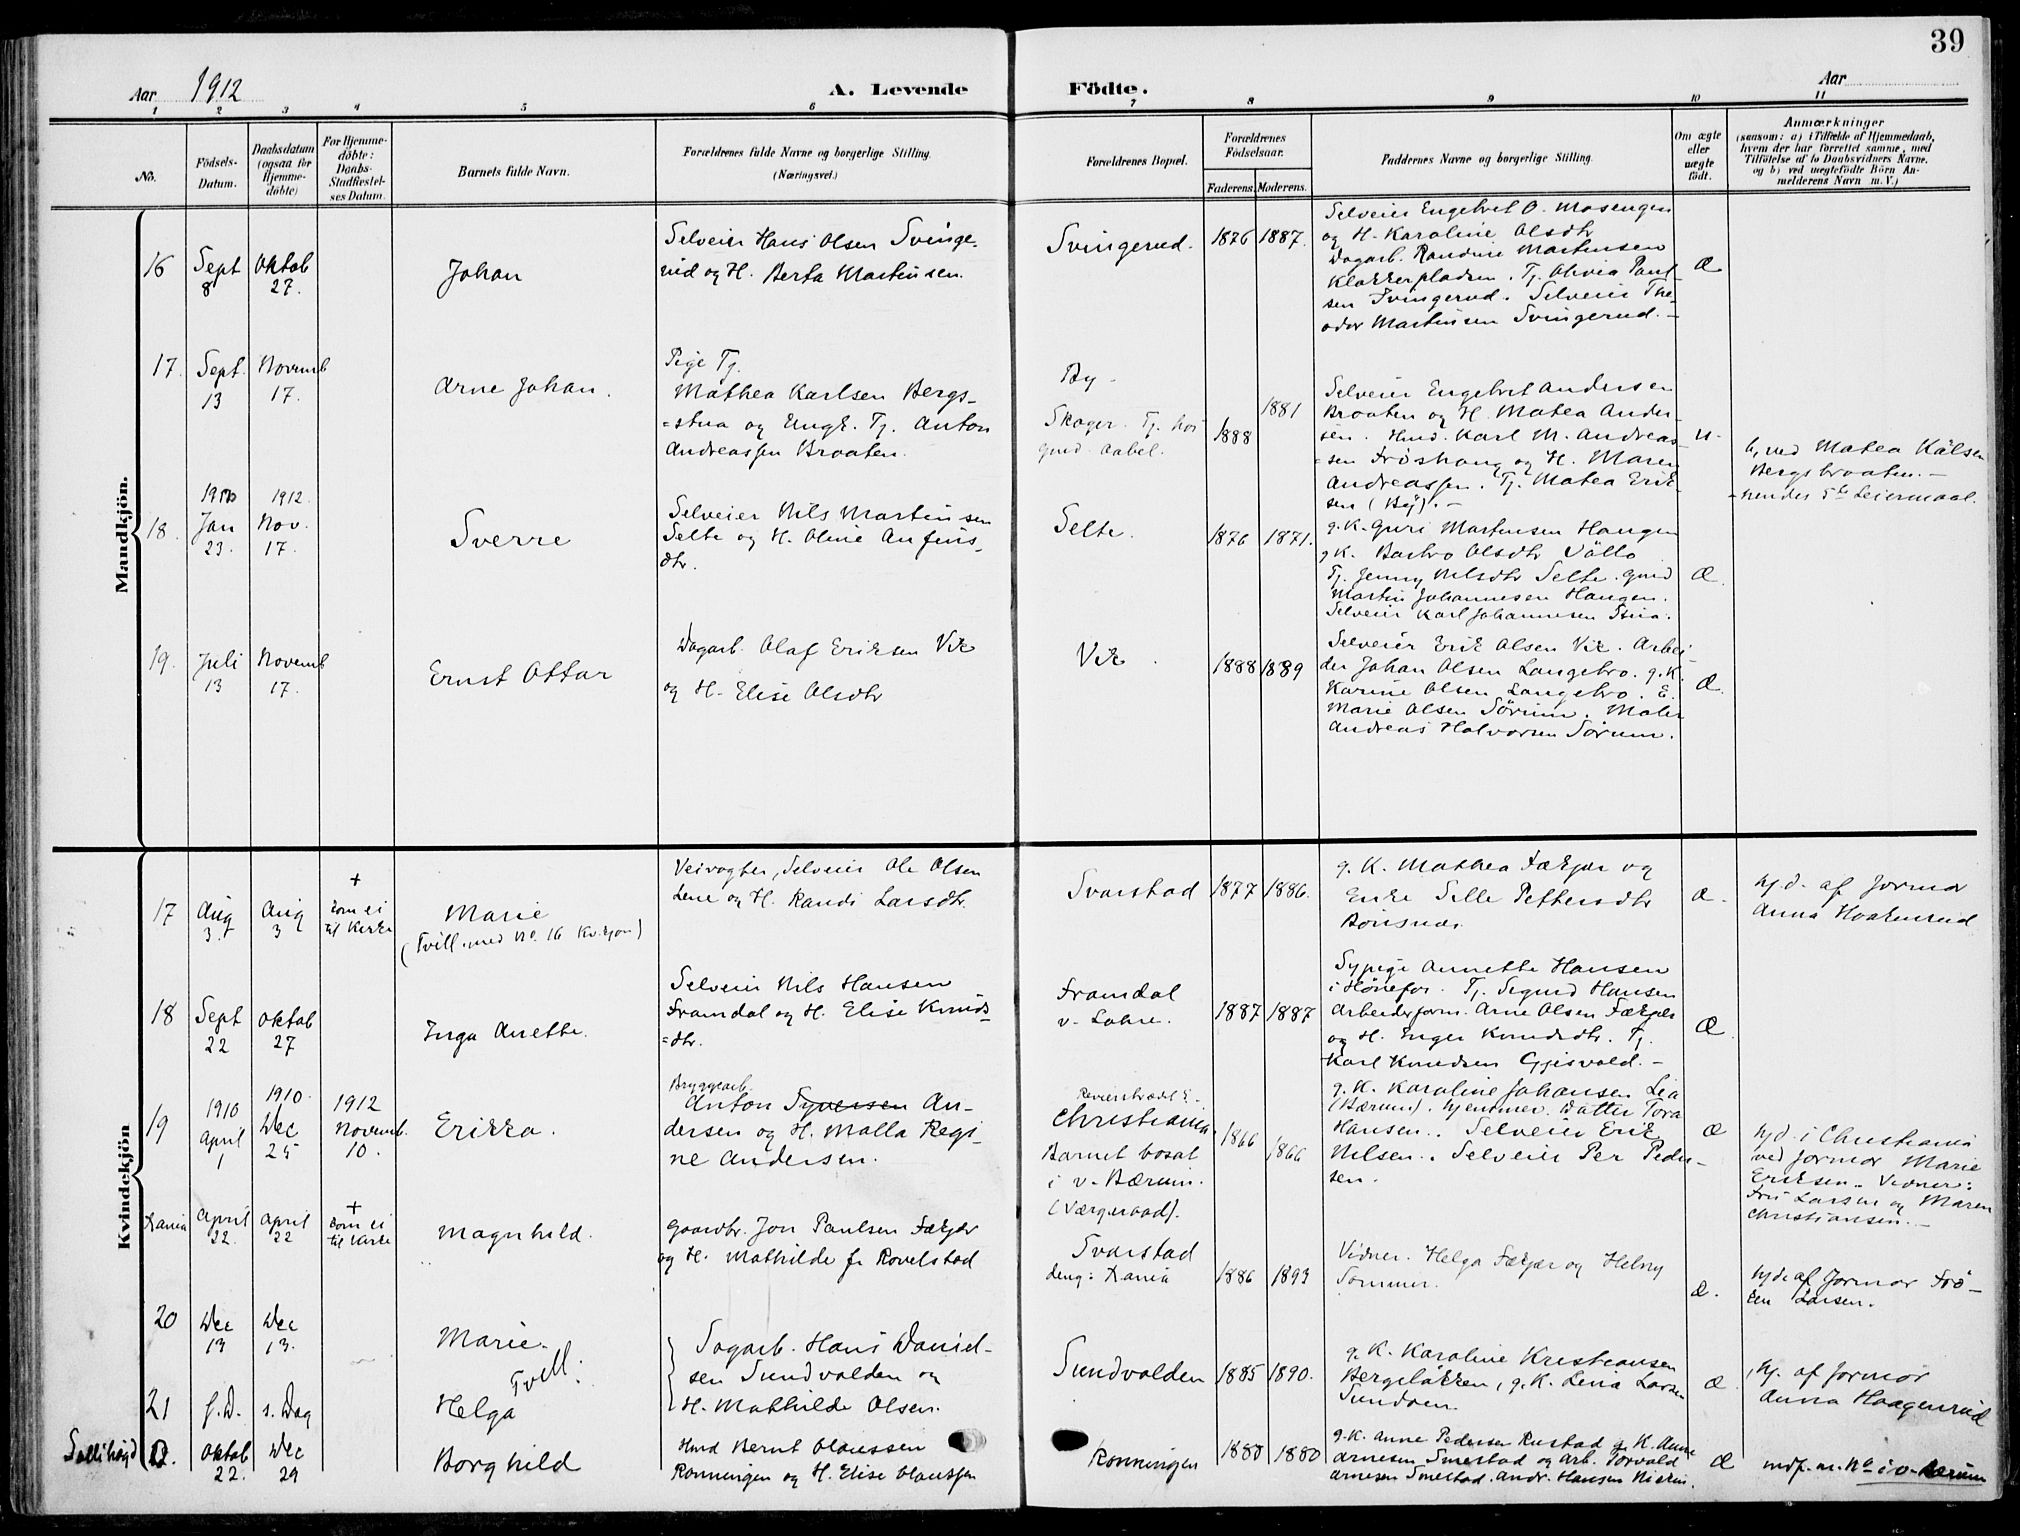 39
Aar 1912
A. Levende
Födte.
Aar
1 2 3 4 5 6 7 8 9 10 11
No.
Födsels-
Datum.
Daabsdatum
(ogsaa for
Hjemme-
döbte)
For Hjemme-
döbte:
Daabs-
Stadfæstel-
ses Datum.
Barnets fulde Navn.
Forældrenes fulde Navne og borgerlige Stilling.
(Næringsvei.)
Forældrenes Bopæl.
Forældrenes
Födselsaar.
Faderens. Moderens.
Faddernes Navne og borgerlige Stilling.
Om ægte
eller
uægte
födt.
Anmærkninger
(saasom: a) i Tilfælde af Hjemmedaab,
hvem der har forrettet samme, med
Tilföielse af to Daabsvidners Navne,
og b) ved uægtefödte Börn An-
melderens Navn m. V.)
Mandkjön.
16
Sept
8
Oktob
27.
Johan
Selveier Hans Olsen Svinge-
rud og H. Berta Martinsen.
Svingerud.
1876 1887.
Selveier Engebret O. Mosengen
og H. Karoline Olsdtr
Dagarb. Randine Martinsen
Klokkerpladsen. Tj. Olivia Paul-
sen Svingerud. Selveier The-
odor Martinsen Svingerud. -
Æ
17.
Sept.
13
Novemb
17.
Arne Johan.
Pige Tj.
Mathea Karlsen Bergs-
=stua og Ungk. Tj. Anton
Andreassen Braaten.
By -
Skoger. Tj. hos
gmd. Aabel.
1888
1881
Selveier Engebret Andersen
Braaten og H. Matea Ander-
sen. Hmd. Karl M. Andreas-
=sen Fröshaug og H. Maren
Andreassen. Tj. Matea Erik-
sen (By). -
u.
b, ved Matea
Bergsbraaten. -
hendes 5te Leiermaal.
18.
Jan
23.
1912.
Nov.
17.
Sverre
Selveier Nils Martinsen
Selte og H. Oline Anfins-
dtr.
Selte.
1876 1871.
g. K. Guri Martinsen Haugen
g K. Barbro Olsdtr
Tj. Jenny Nilsdtr Selte. Gmd
Martin Johannesen Haugen.
Selveier Karl Johannesen Stua.
Æ.
19.
Juli
13
Novemb
17.
Ernst Ottar
Dagarb. Olaf Eriksen Vik
og H. Elise Olsdtr
Vik.
1888 1889
Selveier Erik Olsen Vik. Arbei-
der Johan Olsen Langebro. g. K.
Karine Olsen Langebro. E.
Marie Olsen Sörum. Maler
Andreas Halvorsen Sörum.
Æ.
Kvindekjön
17
Aug
3.
Aug
3
+
kom ei
til Kirke
Marie
(Tvill. med No. 16 Kv.kjön)
Veivogter, Selveier Ole Olsen
Lene og H. Randi Larsdtr.
Svarstad
1877 1886.
g. K. Mathea Fækjær og
Enke Sille Pettersdtr
Bönsnæs.
Æ.
hj.d. af Jormor
Anna Haakenrud
18
Sept
22
Oktob
27
Inga Anette.
Selveier Nils Hansen
Framdal og H. Elise Knuds-
=dtr.
Framdal
v. Lohre.
1887 1887
Sypige Annette Hansen
i Hönefos. Tj. Sigurd Hansen
Arbeiderform. Arne Olsen Fækjær
og H. Inger Knudsdtr. Tj.
Karl Knudsen Gjesvold. -
Æ.
19
1910
April
1
1910.
Dec
25
1912
Novemb.
10.
Erikka.
Bryggearb.
Anton Syversen An-
dersen og H. Malla Regi-
ne Andersen.
Christiania.
Barnet bosat
i V. Bærum.
(Værgeraad).
1866 1866
g. K. Karoline Johansen Lia
(Bærum). hjemmev. Datter Tora
Hansen. Selveier Erik
Nilsen. Selveier Per Peder-
sen.
Æ
hj.d. i Christiania
ved Jormor Marie
Eriksen. Vidner:
Fru Larsen og Maren
Christiansen. -
April
22.
April
22
+
kom ei
til Kirke
Magnhild.
Gaardbr. Jon Paulsen Fækjær
og H. Mathilde f. Rovelstad
Svarstad
1886 1893
Vidner. Helga Fækjær og Helny
Sommer.
Æ.
hj.d. af Jormor Frö-
ken Larsen.
20
Dec
13
Dec
13.
Marie.
Tvill:
Sagarb. Hans Daniel-
sen Sundvolden og
H. Mathilde Olsen.
Sundvolden
1885 1890.
g. K. Karoline Kristiansen
Bergelökken, g. K. Lena Larsen
Sundöen.
Æ.
hj. af Jormor
Anna Haagenrud
21
s. D.
s. Dag
Helga
Sollihögd
Oktob
22.
Dec
29
Borghild
Hmd Bernt Olaussen
Rönningen og H. Elise Olaussen
Rönningen
1880 1880
g. K. Anne Pedersen Rustad g. K. Anne
Arnesen Smestad og Arb. Torvald
Arnesen Smestad. Andr. Hansen
Æ
indf. m. No i V. Bærum